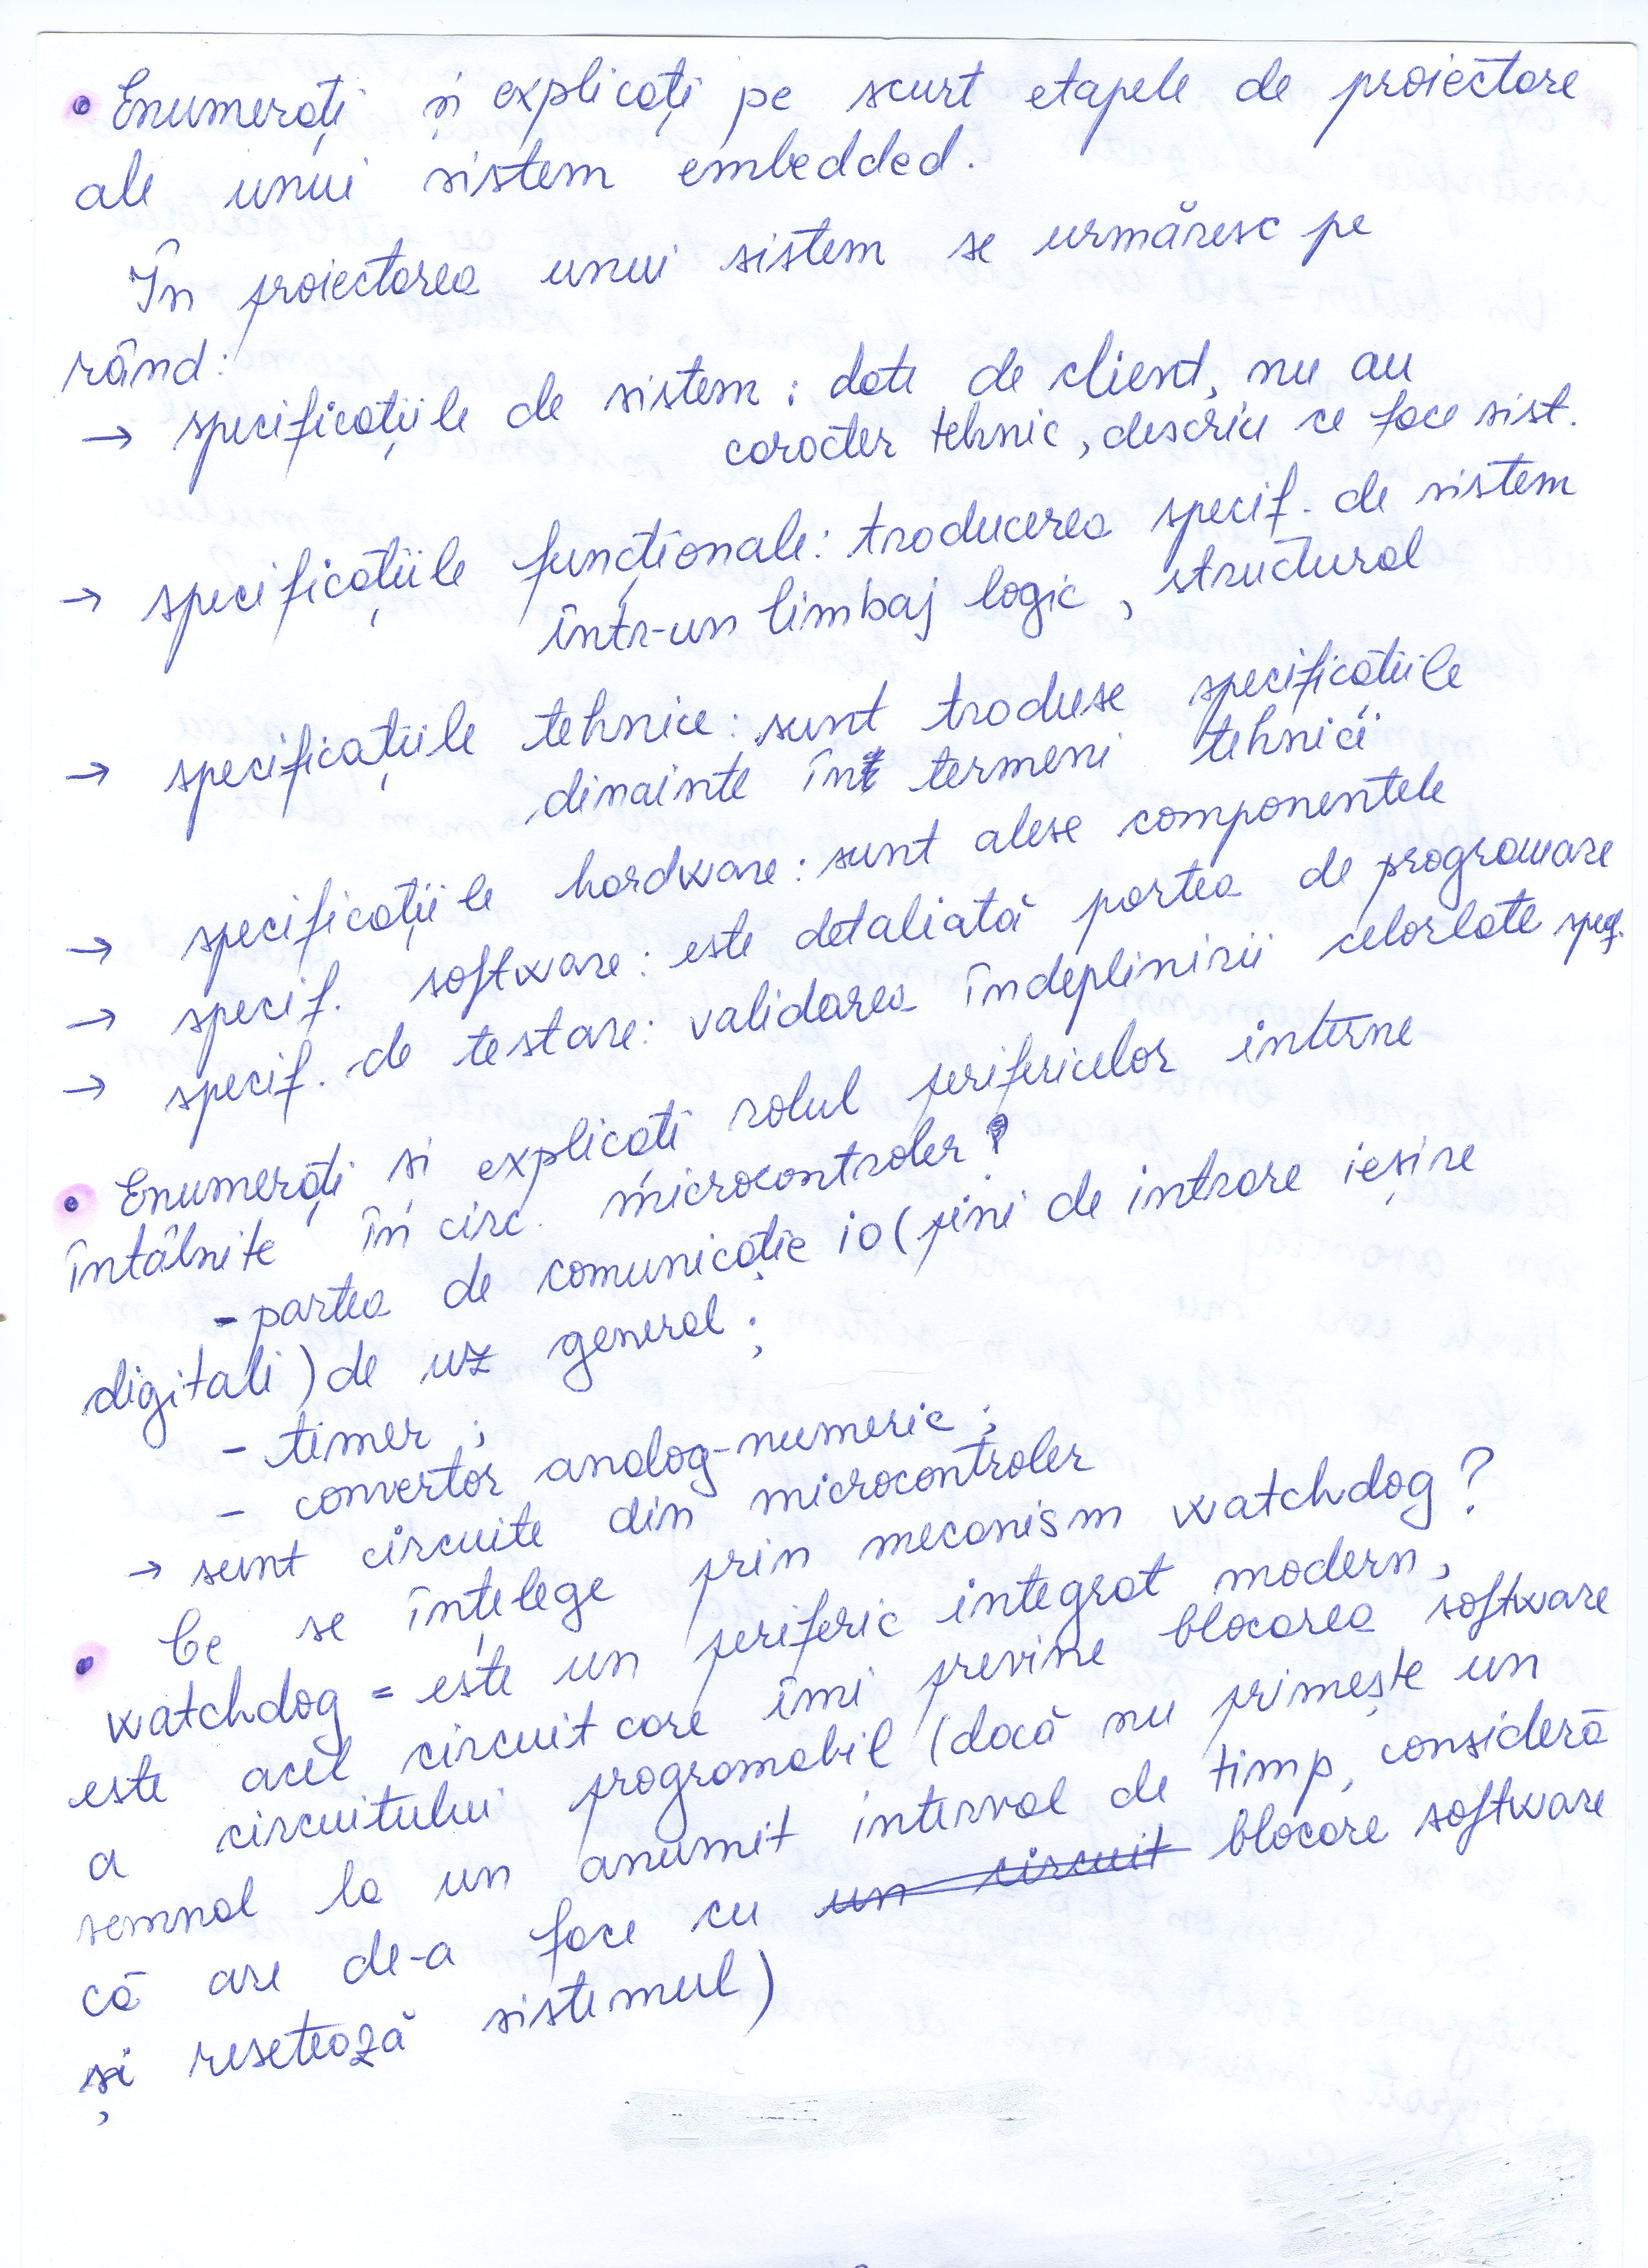 • Enumerați și explicați pe scurt etapele de proiectare
ale unui sistem embedded.
În proiectarea unui sistem se urmăresc pe
rând:
→ specificațiile de sistem: date de client, nu au
caracter tehnic, descriu ce face sist.
→ specificațiile funcționale: traducerea specif. de sistem
într-un limbaj logic, structural
→ specificațiile tehnice: sunt traduse specificațiile
dinainte în termeni tehnici
→ specificațiile hardware: sunt alese componentele
→ specif. software: este detaliată partea de programare
→ specif. de testare: validarea îndeplinirii celorlate specif.
• Enumerați și explicați rolul perifericelor interne
întâlnite în circ. microcontroler?
- partea de comunicație io (pini de intrare ieșire
digitali) de uz general;
- timer;
- convertor analog-numeric;
→ sunt circuite din microcontroler
• Ce se înțelege prin mecanism watchdog?
watchdog = este un periferic integrat modern,
este acel circuit care îmi previne blocarea software
a circuitului programabil (dacă nu primește un
semnal la un anumit interval de timp, consideră
că are de-a face cu un circuit blocare software
și resetează sistemul)